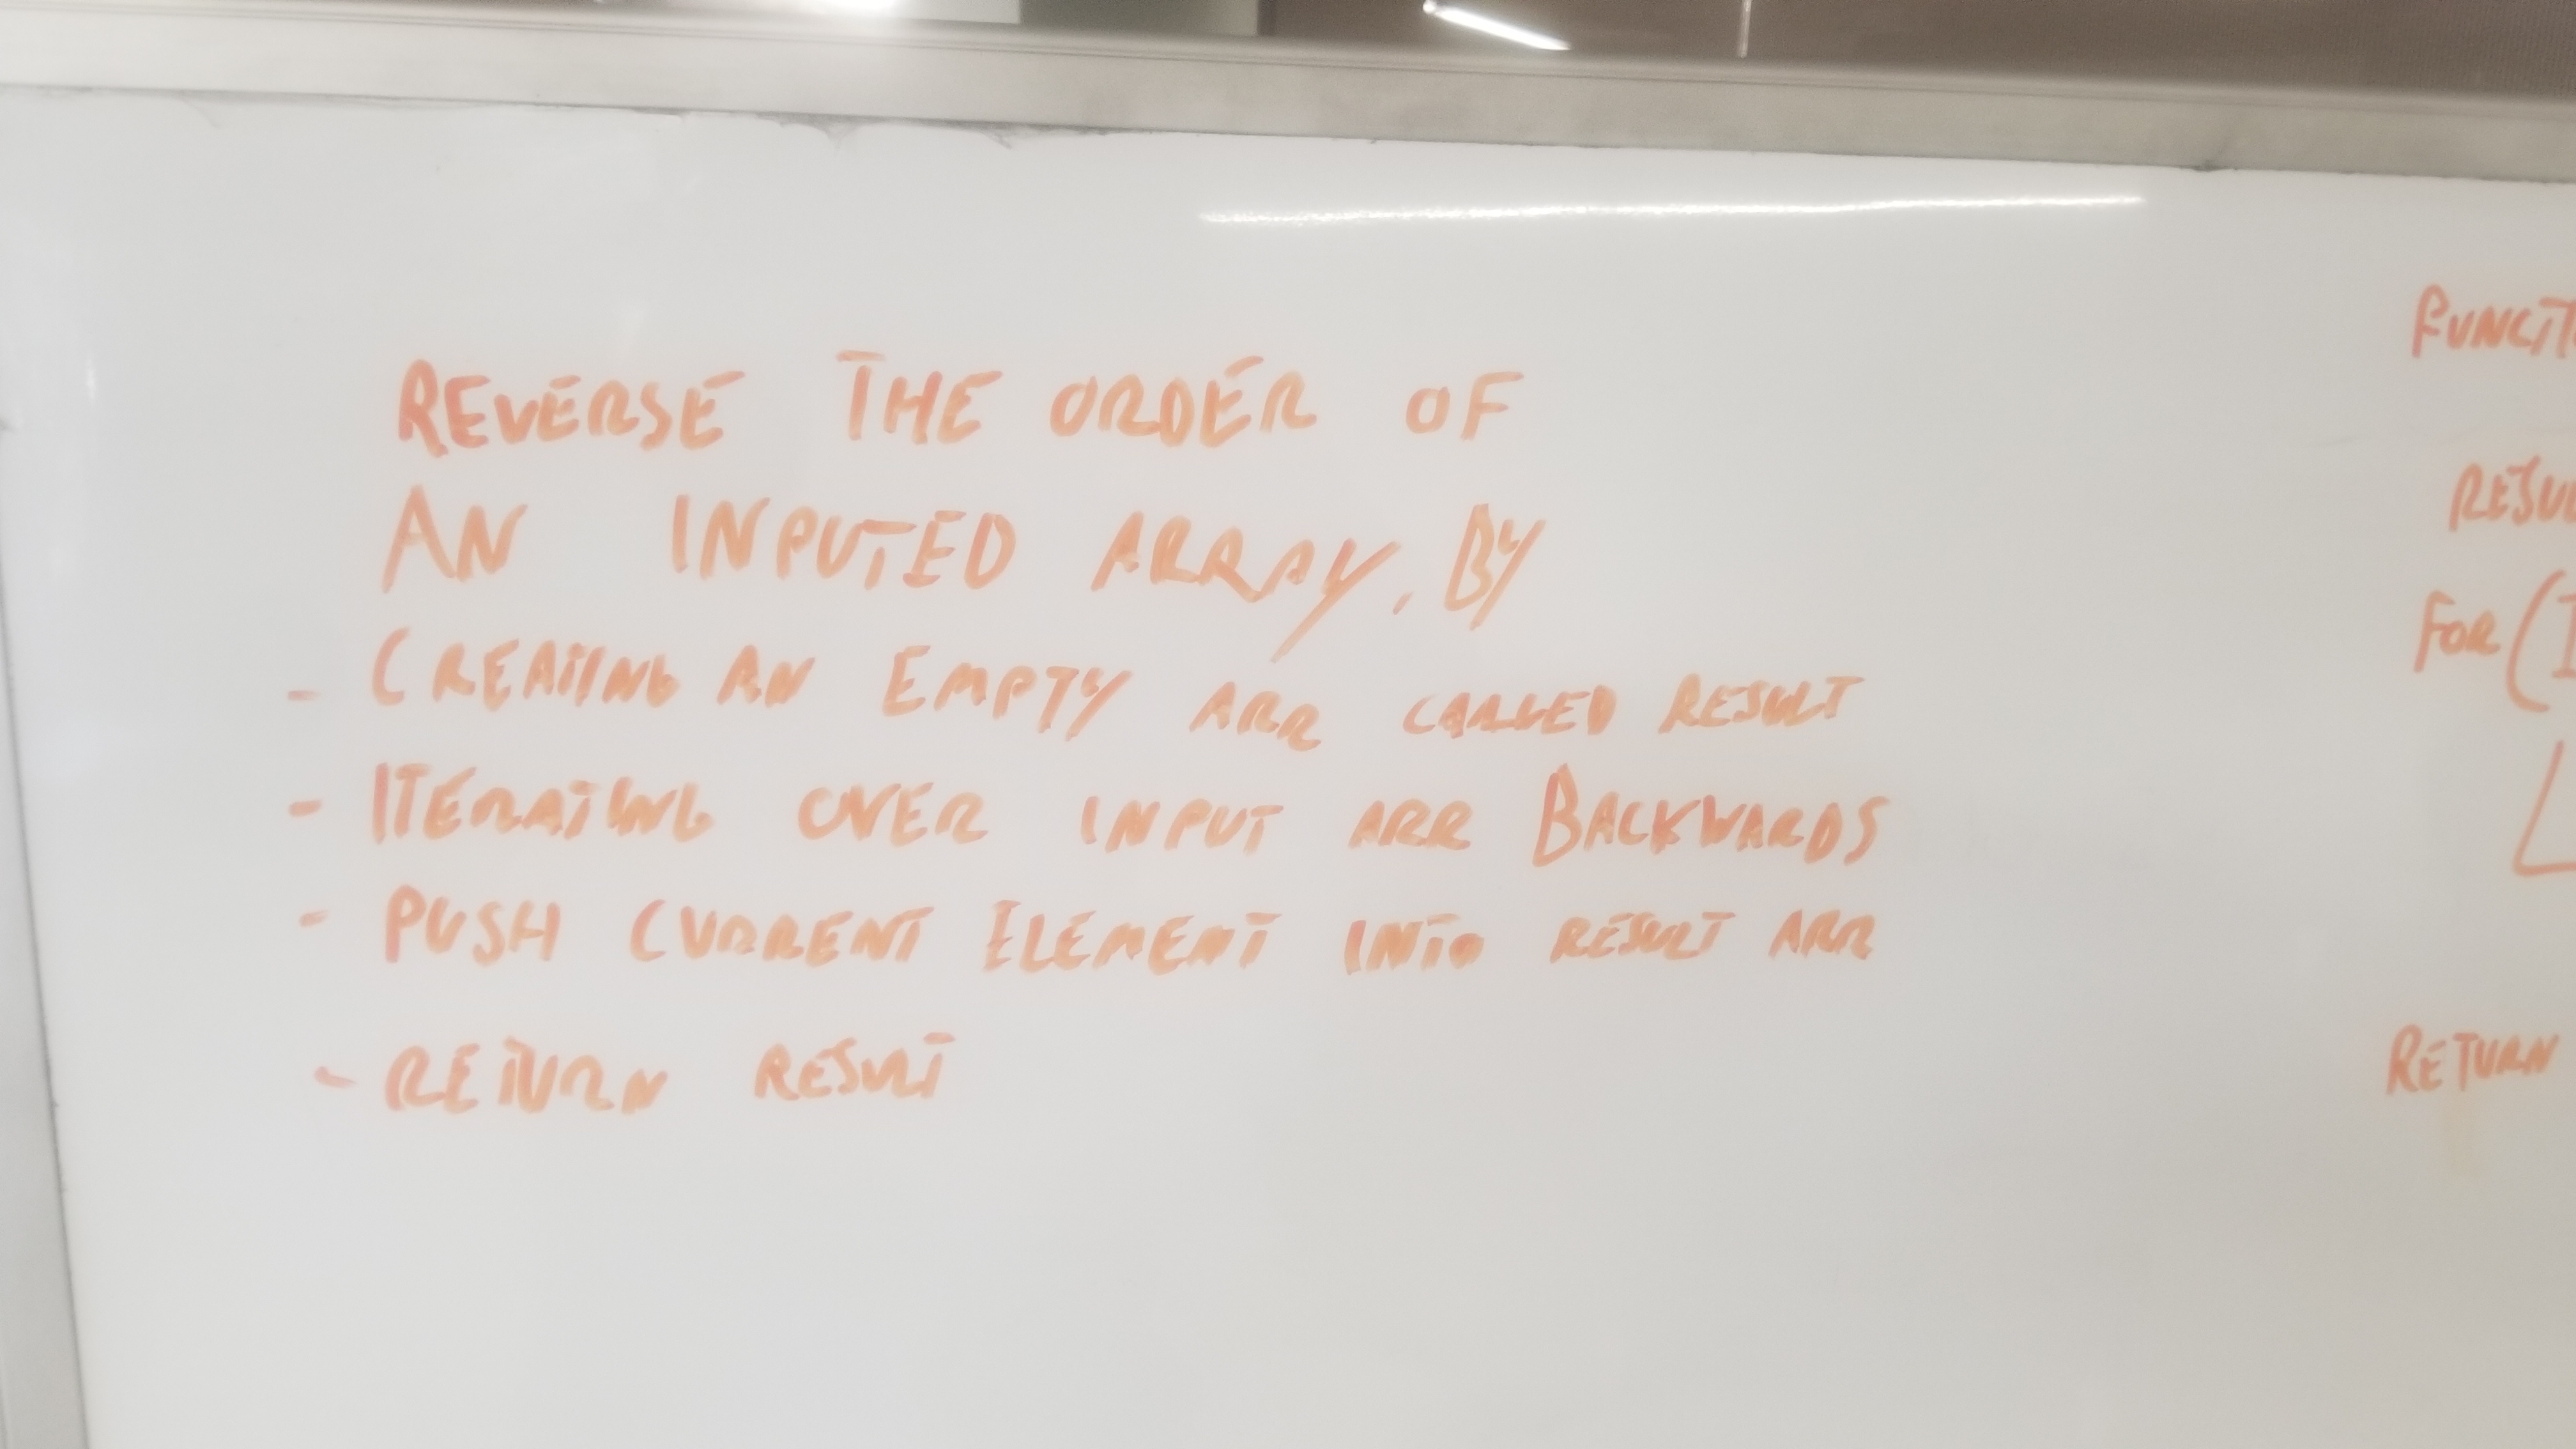 REVERSE THE ORDER OF
AN INPUTED ARRAY, BY
- CREATING AN EMPTY ARR CALLED RESULT
- ITERATING OVER INPUT ARR BACKWARDS
- PUSH CURRENT ELEMENT INTO RESULT ARR
- RETURN RESULT
FUNCT
RESU
FOR (I
RETURN